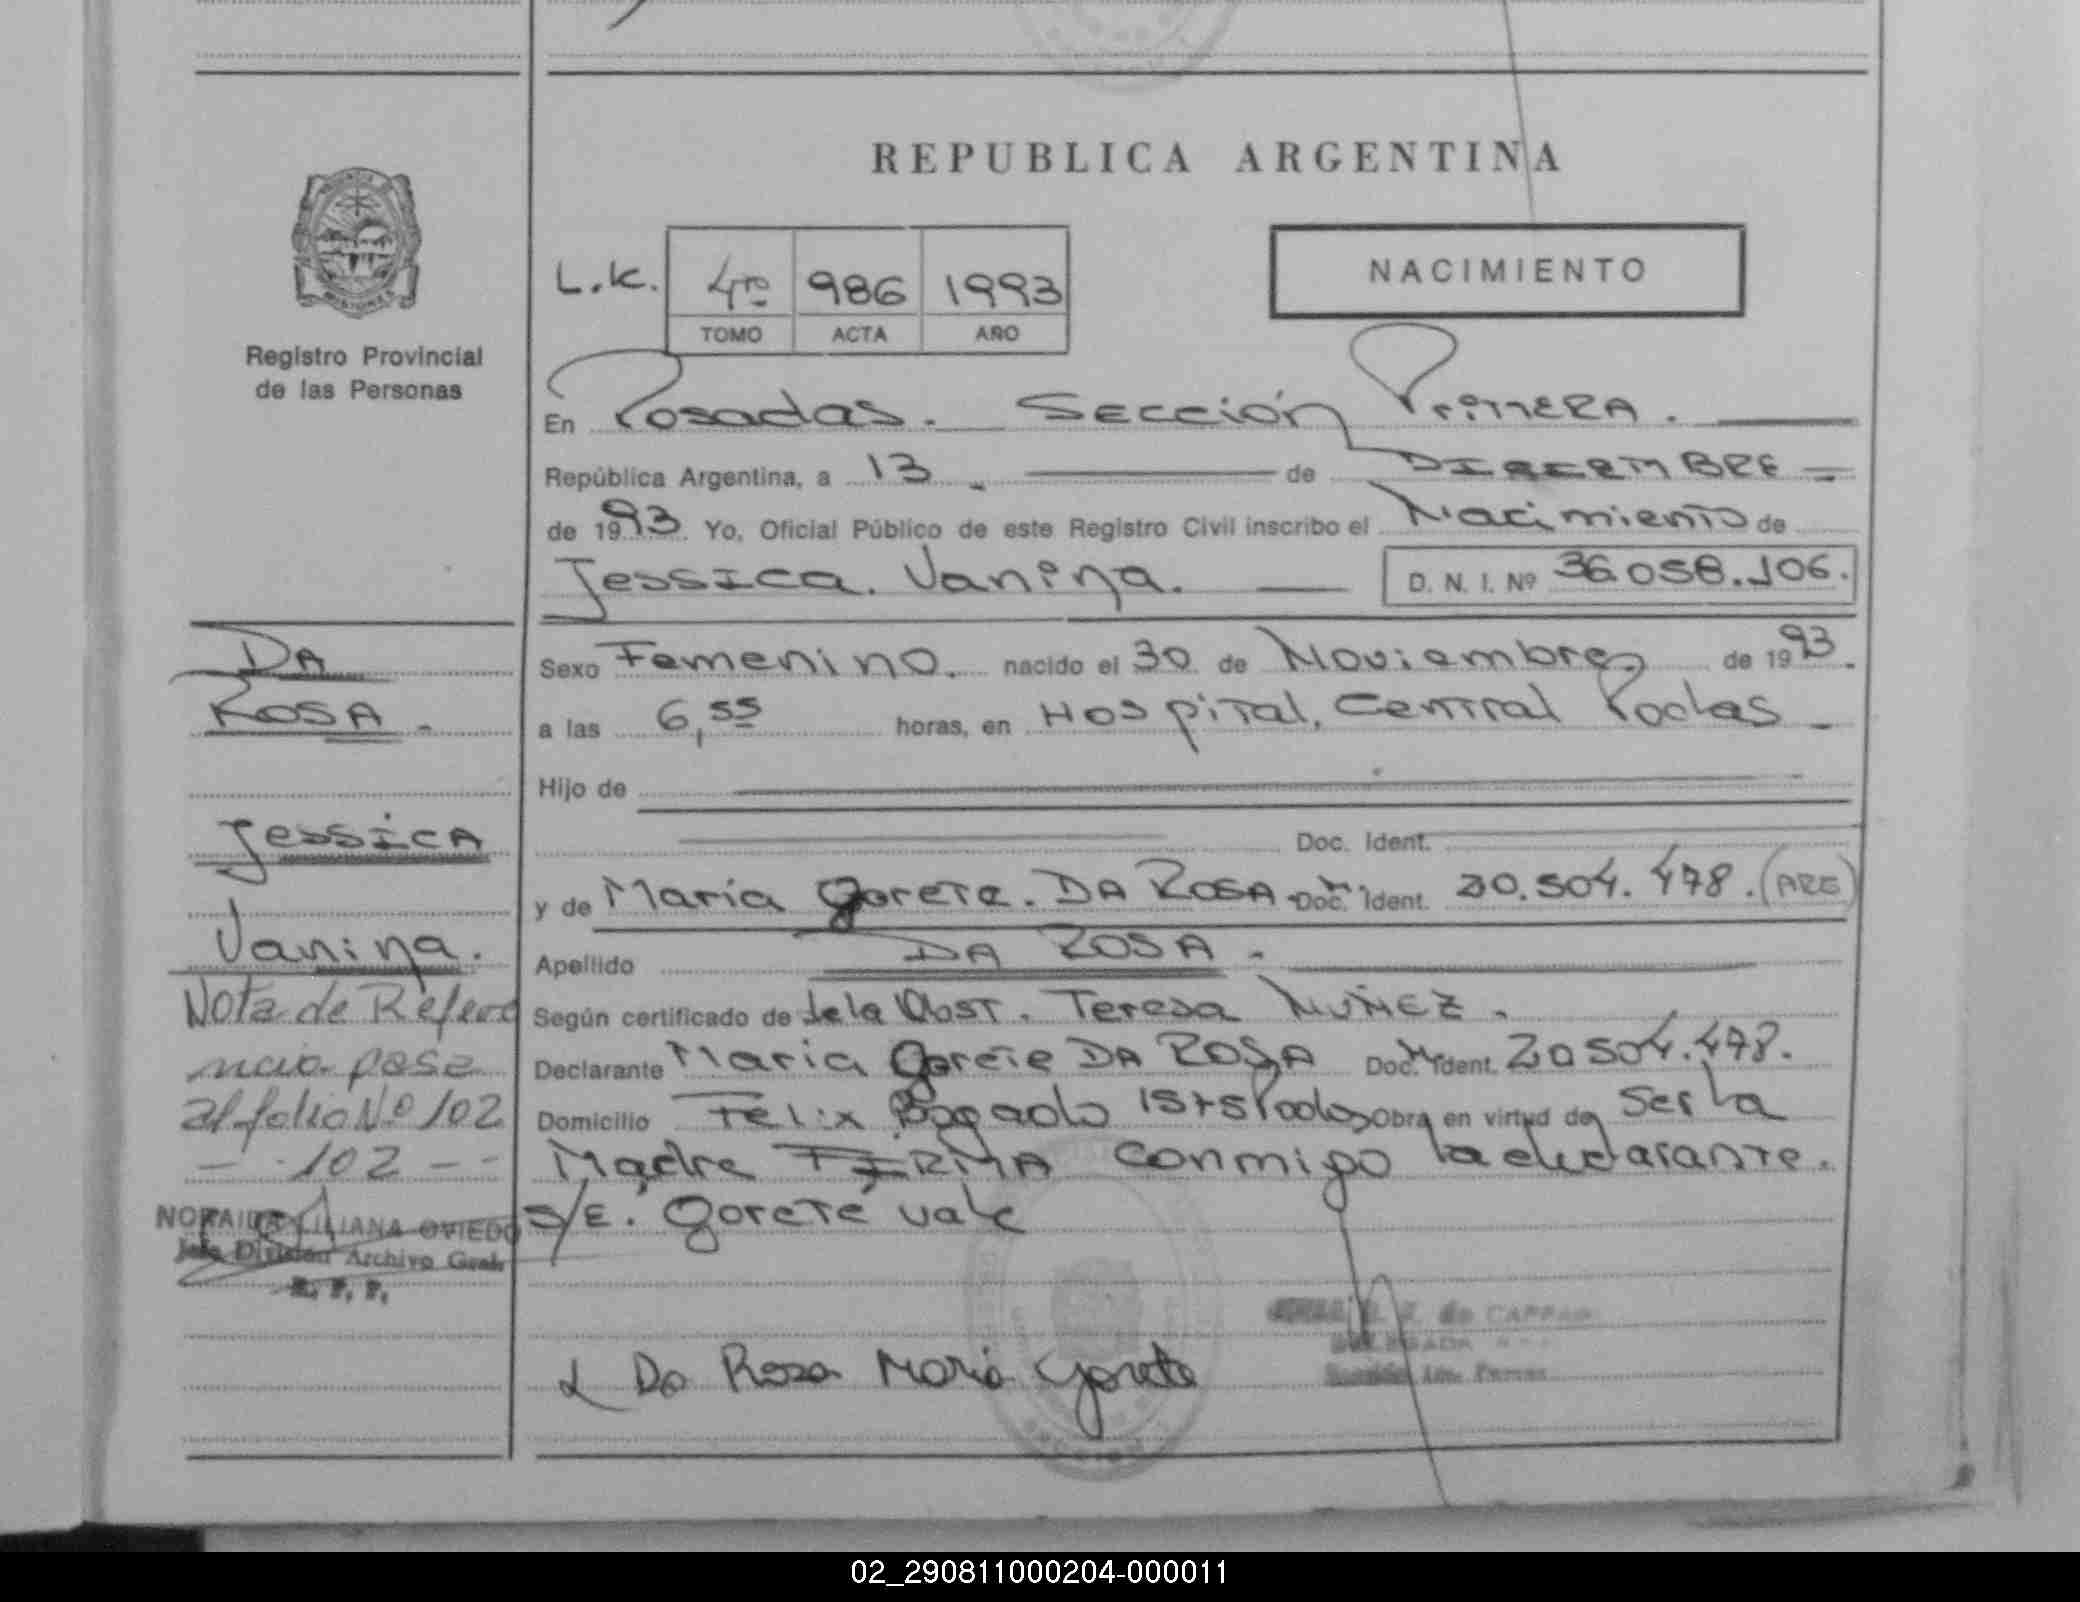 REPUBLICA ARGENTINA
NACIMIENTO
L.K. 4to 986 1993
TOMO ACTA AÑO
Registro Provincial
de las Personas
En Posadas. Sección Primera.
República Argentina, a 13 de DICIEMBRE
de 1993. Yo, Oficial Público de este Registro Civil inscribo el Nacimiento de
Jessica. Vanina. D. N. I. Nº 36.058.106.
DA
ROSA.
Jessica
Vanina.
Nota de Referencia pase
al folio Nº 102
- 102 - -
NORAIDA LILIANA OVIEDO
Jefe División Archivo Gral.
R. P. P.
Sexo Femenino. nacido el 30 de Noviembre de 1993.
a las 6,55 horas, en Hospital, Central Podas
Hijo de
Doc. Ident.
y de Maria Gorete. DA ROSA Doc. Ident. 20.504.478. (ARG)
Apellido DA ROSA.
Según certificado de de la Obst. Teresa NUÑEZ.
Declarante Maria Gorete DA ROSA Doc. Ident. 20504.478.
Domicilio Felix Bogado Obra en virtud de ser la
Madre FIRMA conmigo la declarante.
S/E. Gorete vale
Da Rosa Maria Gorete
de CAPPAD
DELEGADA
02_290811000204-000011